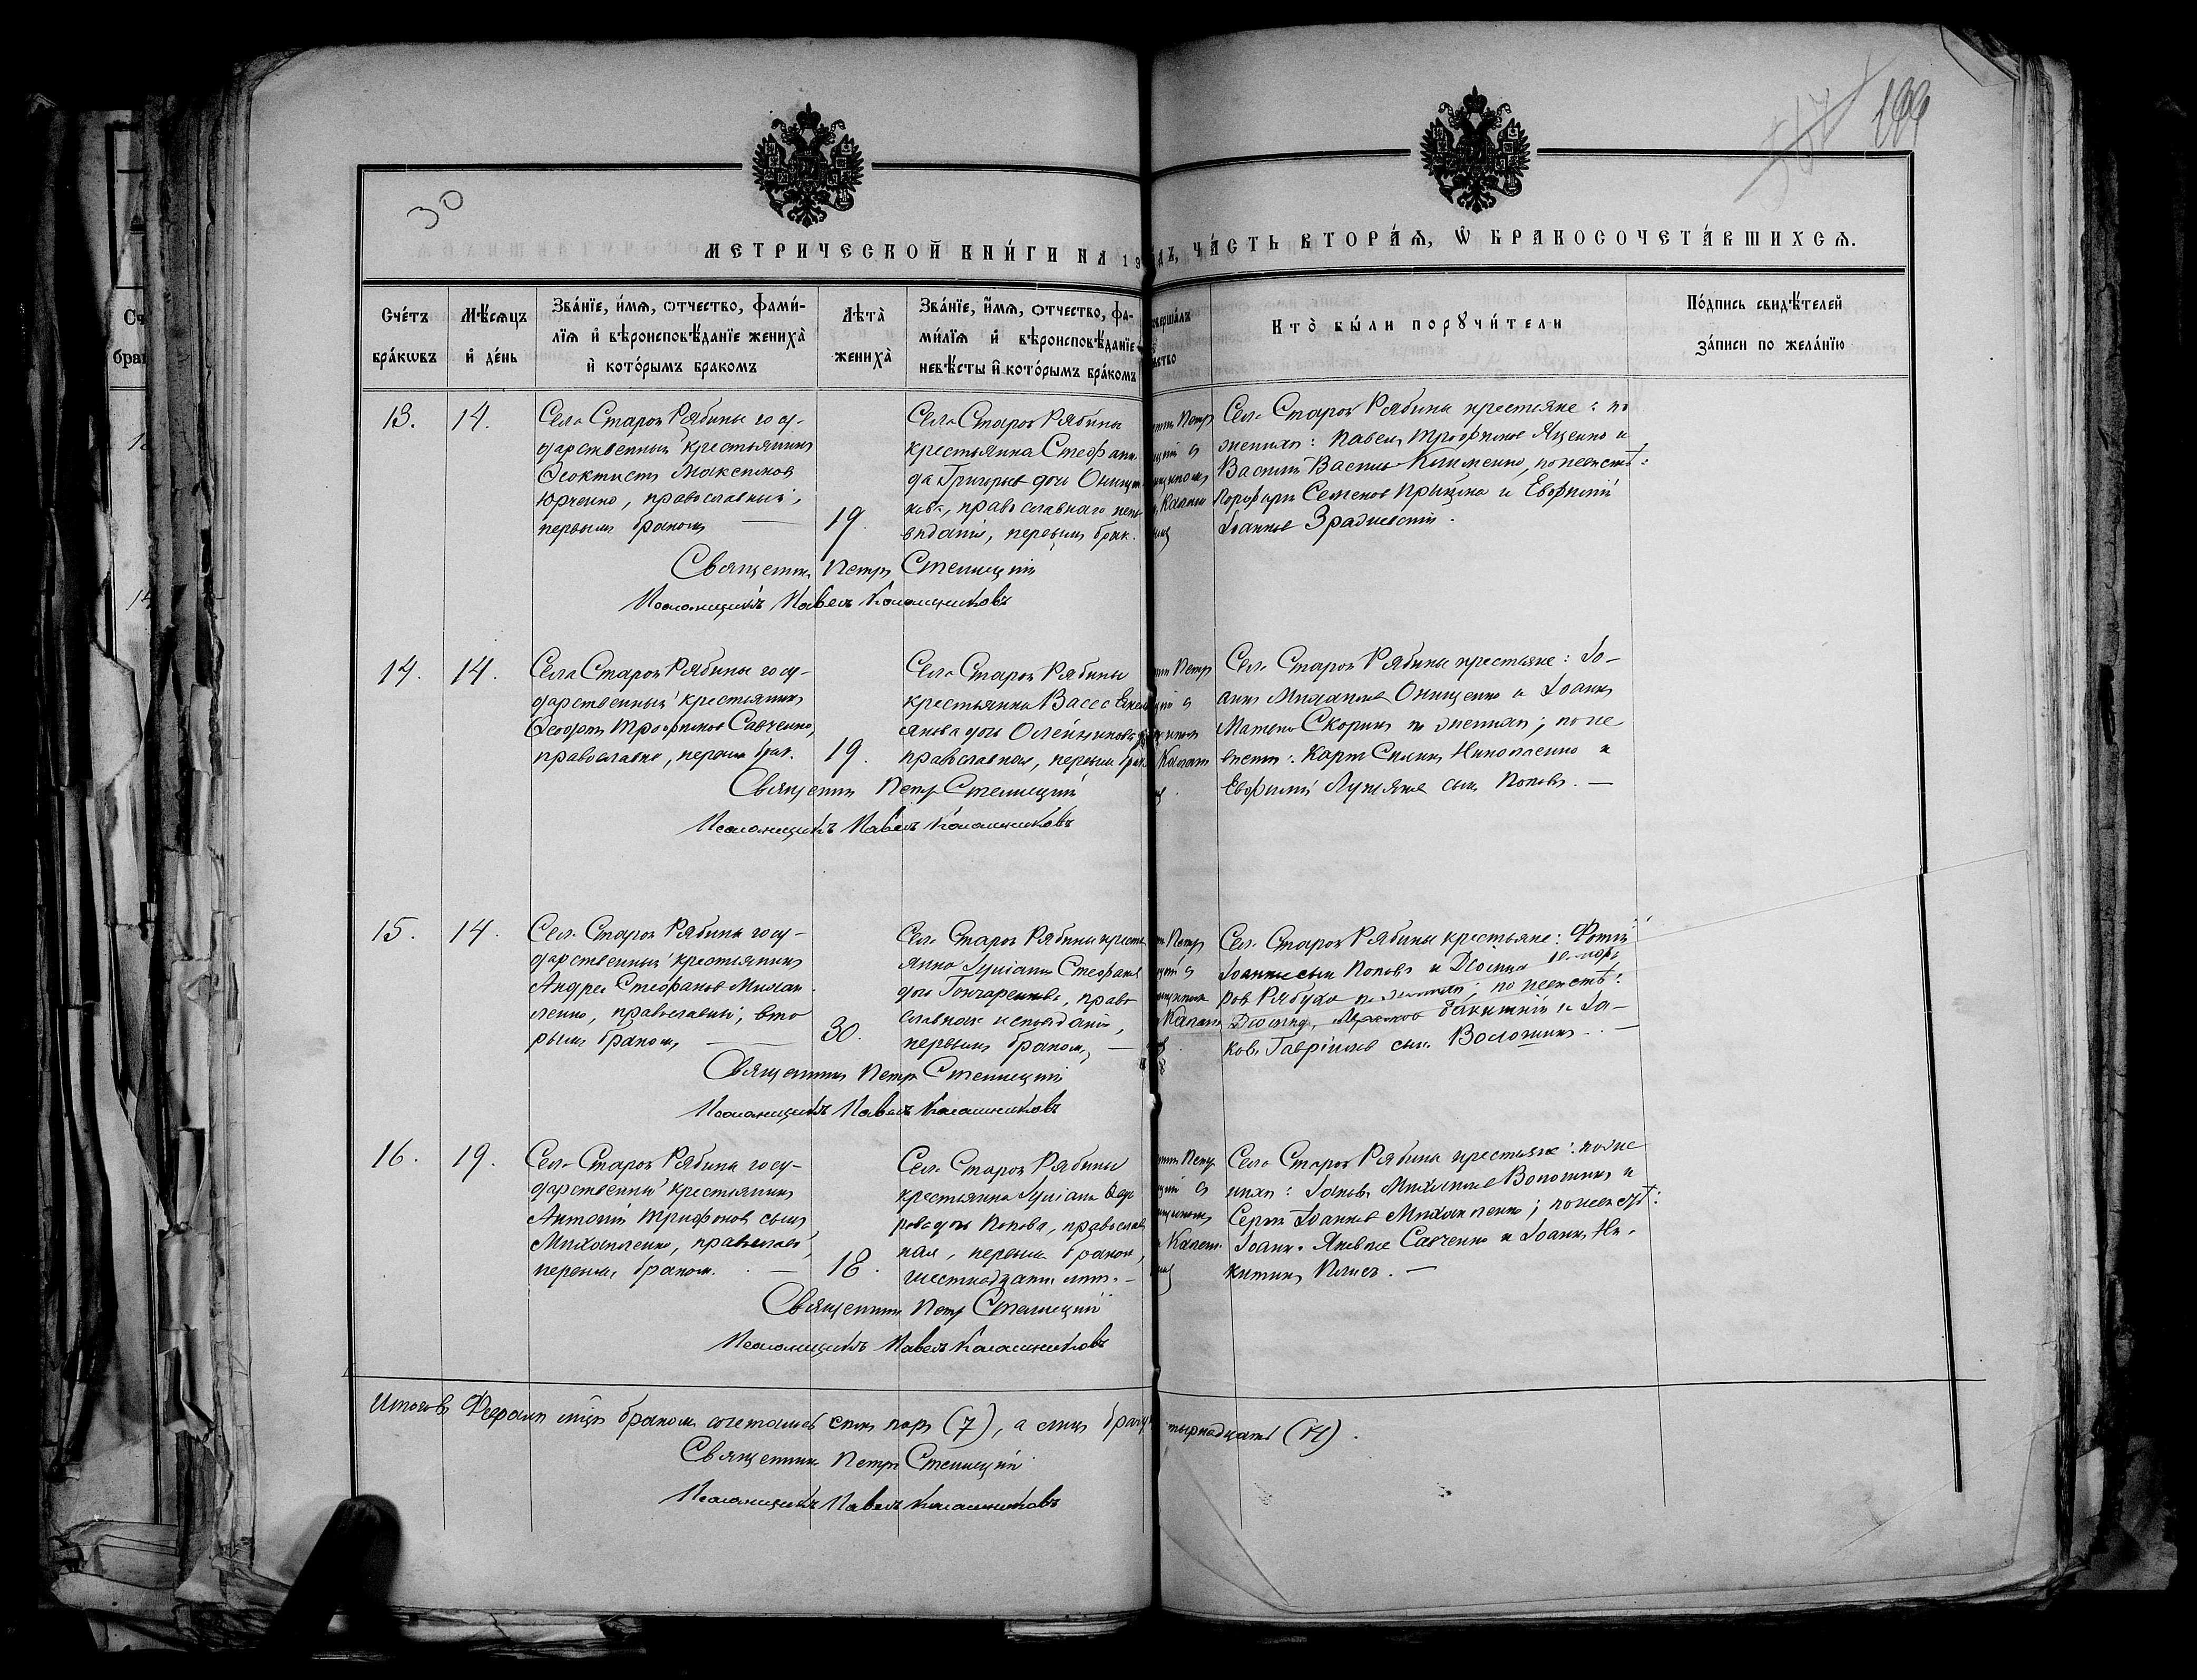 30
199
МЕТРИЧЕСКОЙ КНИ́ГИ НА 19
ДЪ, ЧА́СТЬ ВТОРА́Ѧ, Ѽ БРАКОСОЧЕТА́ВШИХСѦ.
Сче́тъ
бра́кѡвъ
Мѣ́сѧцъ
и҆ де́нь
Зва́нїе, и҆́мѧ, ѻтчество, фами́-
лїѧ и҆ вѣроисповѣ́данїе жениха̀
и҆ кото́рымъ бракомъ
Лѣта̀
жениха̀
Зва́нїе, и҆́мѧ, ѻтчество, фа-
ми́лїѧ и҆ вѣроисповѣ́данїе
невѣ́сты и҆ кото́рымъ бра́комъ
Кто̀ бы́ли порꙋчи́тели
По́дпись свидѣ́телей
за́писи по жела́нїю
13.
14.
Села Старой Рябины госу-
дарственный крестьянинъ
Ѳеоктистъ Максимовъ
Юрченко, православный,
первымъ бракомъ
19.
Села Старой Рябины
крестьянка Стефани-
да Григорьева дочь Онищен-
кова, православнаго испо-
вѣданія, первымъ брак.
Петръ
Села Старой Рябины крестьяне: по
женихѣ: Павелъ Трофимовъ Яценко и
Василій Васильевъ Клименко, по невѣстѣ:
Порфирій Семеновъ Прыцина и Евфимій
Іоанновъ Зрадчевскій.
Священникъ Петръ Стеллецкій
Псаломщикъ Павелъ Калашниковъ
14.
14.
Села Старой Рябины госу-
дарственный крестьянинъ
Ѳеофанъ Трофимовъ Савченко,
православный, первымъ брак.
19.
Села Старой Рябины
крестьянка Васса Емель-
янова дочь Олейникова
православная, первымъ брак.
Петръ
Села Старой Рябины крестьяне: Іо-
аннъ Михаиловъ Онищенко и Іоаннъ
Матвѣевъ Скорикъ по женихѣ; по не
вѣстѣ: Карпъ Силинъ Николаенко и
Евфимій Лукіяновъ сынъ Поповъ. —
Священникъ Петръ Стеллецкій
Псаломщикъ Павелъ Калашниковъ
15.
14.
Села Старой Рябины госу-
дарственный крестьянинъ
Андрей Стефановъ Михай-
ленко, православный, вто
рымъ бракомъ
30.
Села Старой Рябины кресть
янка Іуліанія Стефанова
дочь Гончаренкова, право
славнаго исповѣданія,
первымъ бракомъ, —
Петръ
Села Старой Рябины крестьяне: Фотій
Іоанновъ сынъ Поповъ и
ровъ Рябуха по женихѣ; по невѣстѣ:
и Іа-
ковъ Гавріиловъ сынъ Волошинъ. —
Священникъ Петръ Стеллецкій
Псаломщикъ Павелъ Калашниковъ
16.
19.
Села Старой Рябины госу-
дарственный крестьянинъ
Антоній Трифоновъ сынъ
Михайленко, православный,
первымъ бракомъ. —
18.
Села Старой Рябины
крестьянка Іуліанія Ѳедо
рова дочь Попова, православ
ная, первымъ бракомъ,
шестнадцати лѣтъ. —
Петръ
Села Старой Рябины крестьяне: по же
нихѣ: Іаковъ Михаиловъ Волошинъ и
Сергій Іоанновъ Михайленко; по невѣстѣ:
Іоаннъ Яковлевъ Савченко и Іоаннъ Ни-
китинъ
Священникъ Петръ Стеллецкій
Псаломщикъ Павелъ Калашниковъ
Итого въ Февралѣ мѣсяцѣ бракомъ сочетались семь паръ (7), а лицъ
тырнадцать (14).
Священникъ Петръ Стеллецкій
Псаломщикъ Павелъ Калашниковъ